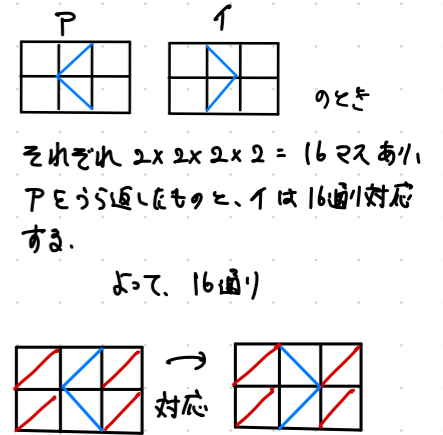 ア イ
のとき
それぞれ 2×2×2×2 = 16 マス あり、
アをうら返したものと、イは16通り対応
する.
よって、16通り
→
対応